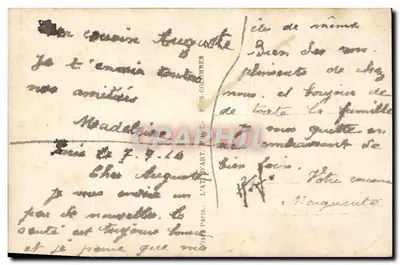 cousin Auguste
Je t'envoie toutes
nos amitiés
Madeleine
Paris le 7.9.14
Cher Auguste
je vous envoie un
peu de nouvelles. la
santé est toujours bonne
et je pense que
de même
Bien des com
pliments de chez
nous. et bonjour de
de toute la famille
vous quitte en
embrassant de
bien loin.
Votre cousine
Marguerite
L'ABEILLE
CPARAMA
COLOMBES
Paris.